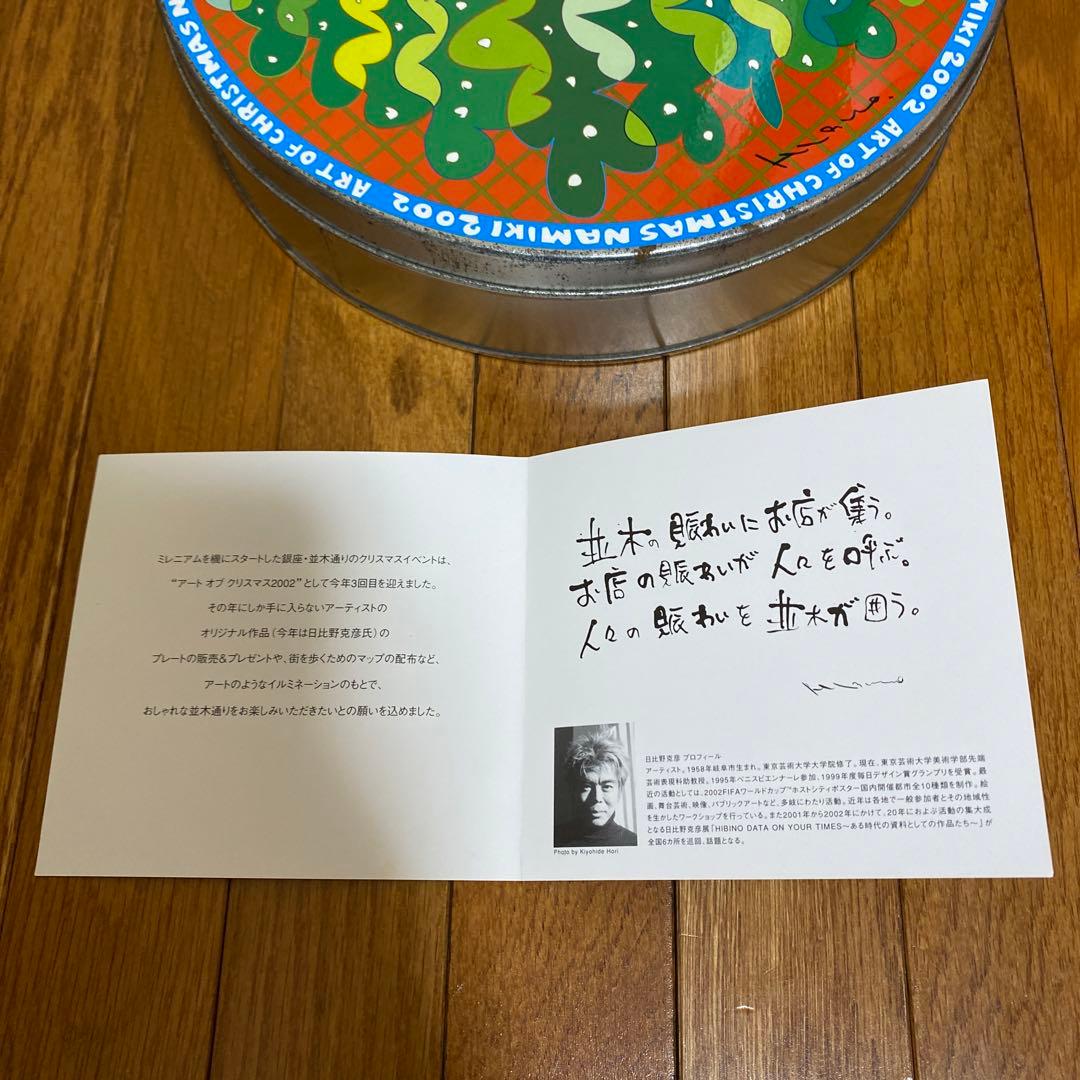 NAMIKI 2002 ART OF CHRISTMAS NAMIKI 2002 ART OF CHRISTMAS
ミレニアムを機にスタートした銀座・並木通りのクリスマスイベントは、
“アート オブ クリスマス2002”として今年3回目を迎えました。
その年にしか手に入らないアーティストの
オリジナル作品(今年は日比野克彦氏)の
プレートの販売&プレゼントや、街を歩くためのマップの配布など、
アートのようなイルミネーションのもとで、
おしゃれな並木通りをお楽しみいただきたいとの願いを込めました。
並木の賑わいにお店が集う。
お店の賑わいが人々を呼ぶ。
人々の賑わいを並木が囲う。
日比野克彦 プロフィール
アーティスト。1958年岐阜市生まれ。東京芸術大学大学院修了。現在、東京芸術大学美術学部先端
芸術表現科助教授。1995年ベニスビエンナーレ参加、1999年度毎日デザイン賞グランプリを受賞。最
近の活動としては、2002FIFAワールドカップ™ホストシティポスター国内開催都市全10種類を制作。絵
画、舞台芸術、映像、パブリックアートなど、多岐にわたり活動。近年は各地で一般参加者とその地域性
を生かしたワークショップを行っている。また2001年から2002年にかけて、20年におよぶ活動の集大成
となる日比野克彦展「HIBINO DATA ON YOUR TIMES〜ある時代の資料としての作品たち〜」が
全国6カ所を巡回、話題となる。
Photo by Kiyohide Hori